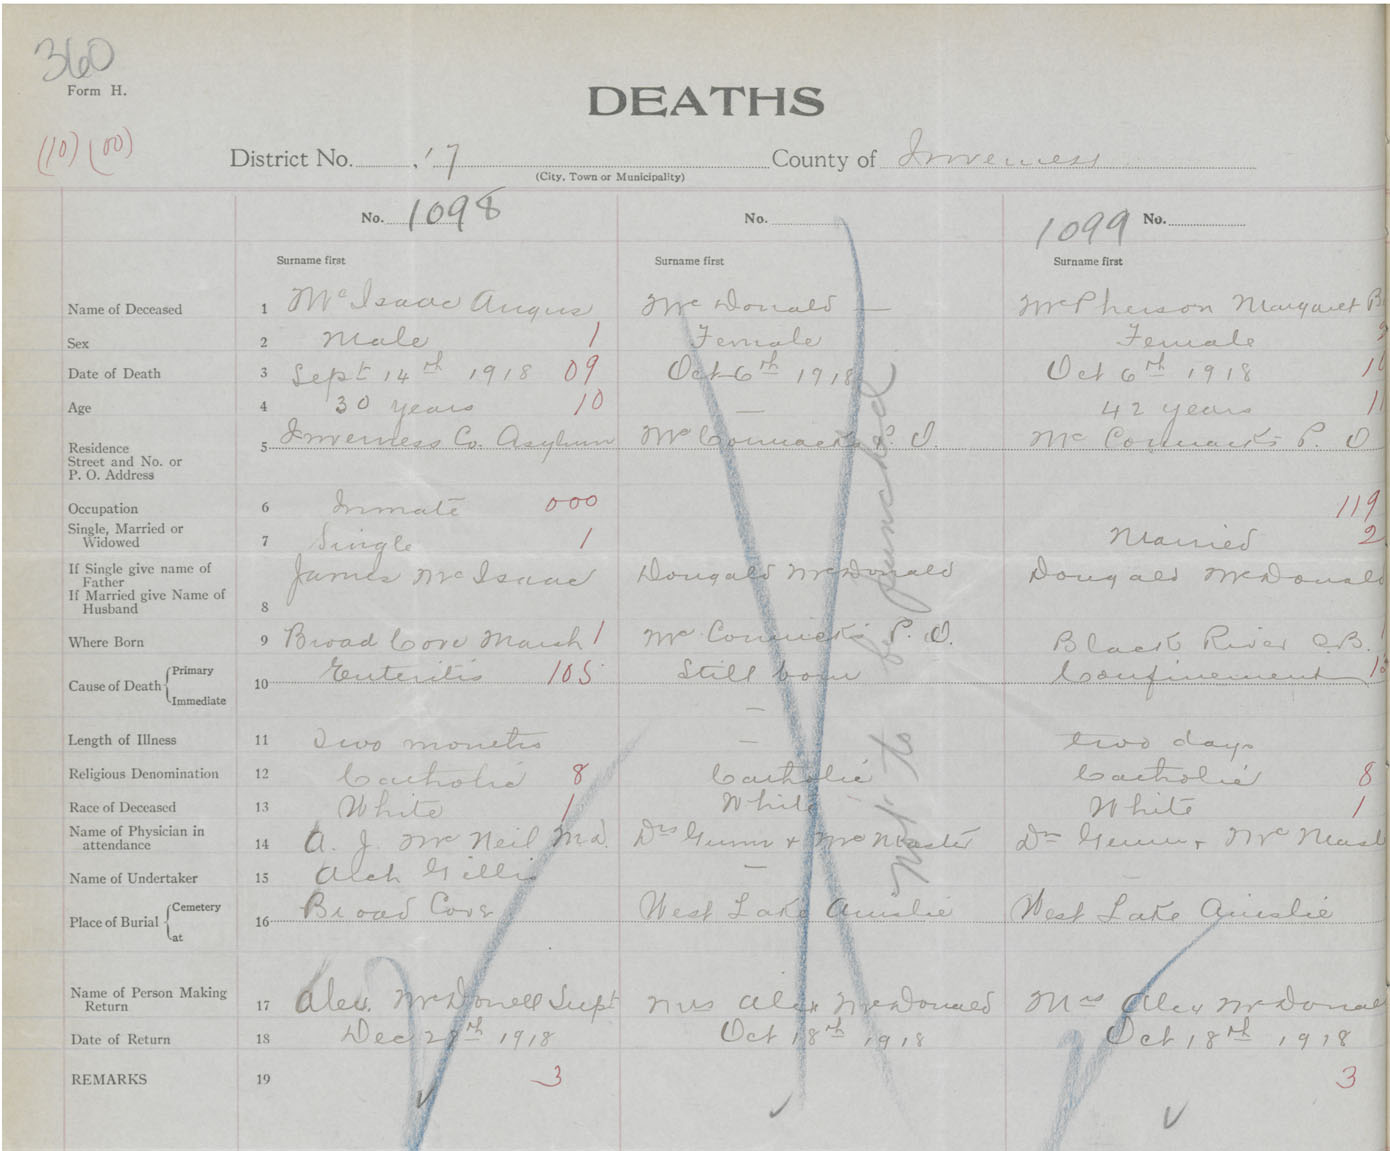 360
Form H.
DEATHS
(10) (00)
District No. 17 County of Inverness
(City, Town or Municipality)
No. 1098 No. 1099 No.
Surname first Surname first Surname first
Name of Deceased 1 McIsaac Angus McDonald — McPherson Margaret B
Sex 2 Male 1 Female Female
Date of Death 3 Sept 14th 1918 09 Oct 6th 1918 Oct 6th 1918 10
Age 4 30 years 10 — 42 years
Residence
Street and No. or
P. O. Address
5 Inverness Co. Asylum McCormacks P. O. Mc Cormacks P. O
Occupation 6 Inmate 000 119
Single, Married or
Widowed
7 Single 1 Married 2
If Single give name of
Father
If Married give Name of
Husband
8 James McIsaac Dougald McDonald Dougald McDonald
Where Born 9 Broad Cove Marsh 1 McCormick's P. O. Black River C.B.
Cause of Death Primary
Immediate
10 Enteritis 105 Still born Confinement
—
Length of Illness 11 Two months — two days
Religious Denomination 12 Catholic 8 Catholic Catholic 8
Race of Deceased 13 White 1 White White 1
Name of Physician in
attendance
14 A. J. McNeil M.D. Drs Gunn & McMaster Drs Gunn & McMast
Name of Undertaker 15 Arch Gillis — —
Place of Burial Cemetery
at
16 Broad Cove West Lake Ainslie West Lake Ainslie
Name of Person Making
Return
17 Alex. McDonell Supt Mrs Alex McDonald Mrs Alex McDonal
Date of Return 18 Dec 28th 1918 Oct 18th 1918 Oct 18th 1918
REMARKS 19 3 3
Not to be punched